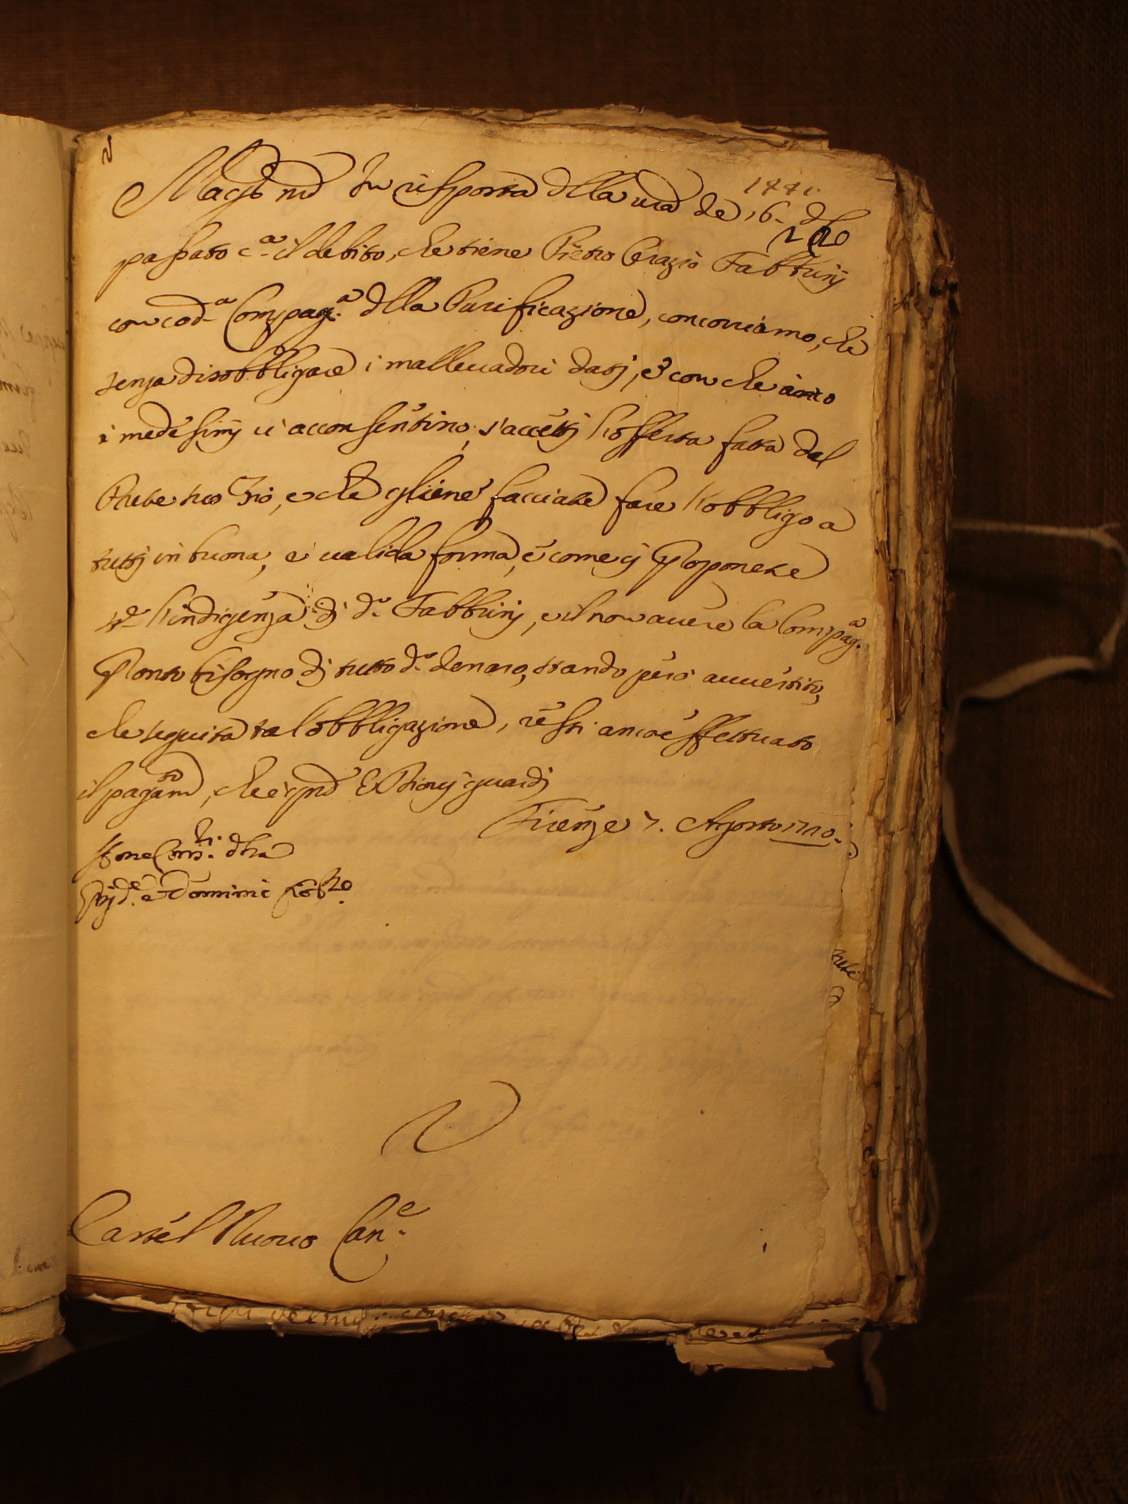 1441.
Mag.co nro In risposta della vra de 16. d
220
passato c.a il debito, che tiene Pietro Orazio Fabbrinj
con cod.a Compag.a della Purificazione, concorriamo, che
senza disobbligare i mallevadori datj, e con che anco
i medesimj vi acconsentino, s'accettj l'offerta fatta dal
Prete suo Zio, e che gliene facciate fare l'obbligo a
tuttj in buona, e valida forma, e come cj proponete
p. l'indigenza dj d.o Fabbrinj, e il non avere la Compag.a
pronto bisogno dj tutto d.o denaro, stando però avvertito,
che seguita tal'obbligazione, resti anco effettuato
il pagam.to, che è q.to E Dio vj guardj
Firenze 7. Agosto 1710.
Castel Nuovo Can.e